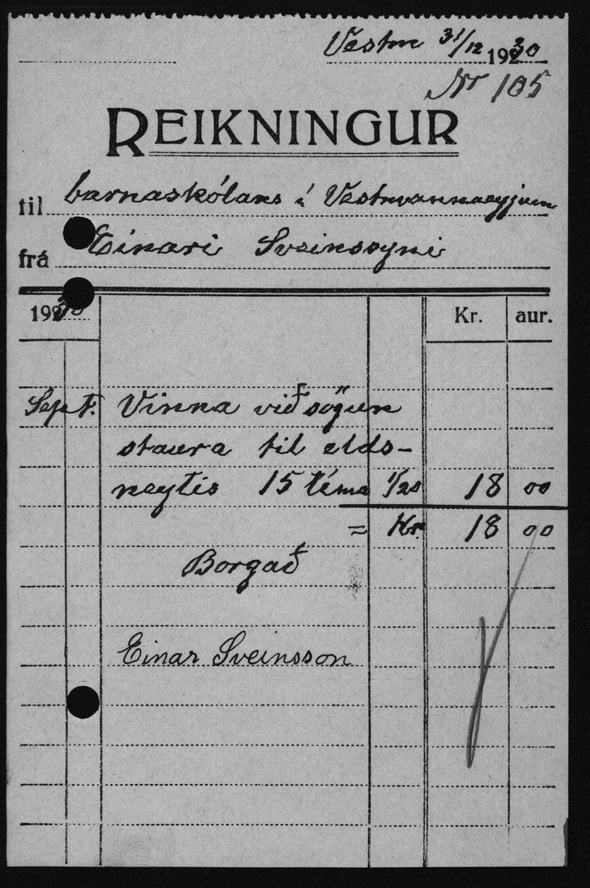 Vestm 31/12 1930
Nr 105
REIKNINGUR
til barnaskólans í Vestmannaeyjum
frá Einari Sveinssyni
1930 Kr. aur.
Sept. Vinna við sögun
staura til elds-
neytis 15 tíma 1/20 18 00
= Kr. 18 00
Borgað
Einar Sveinsson